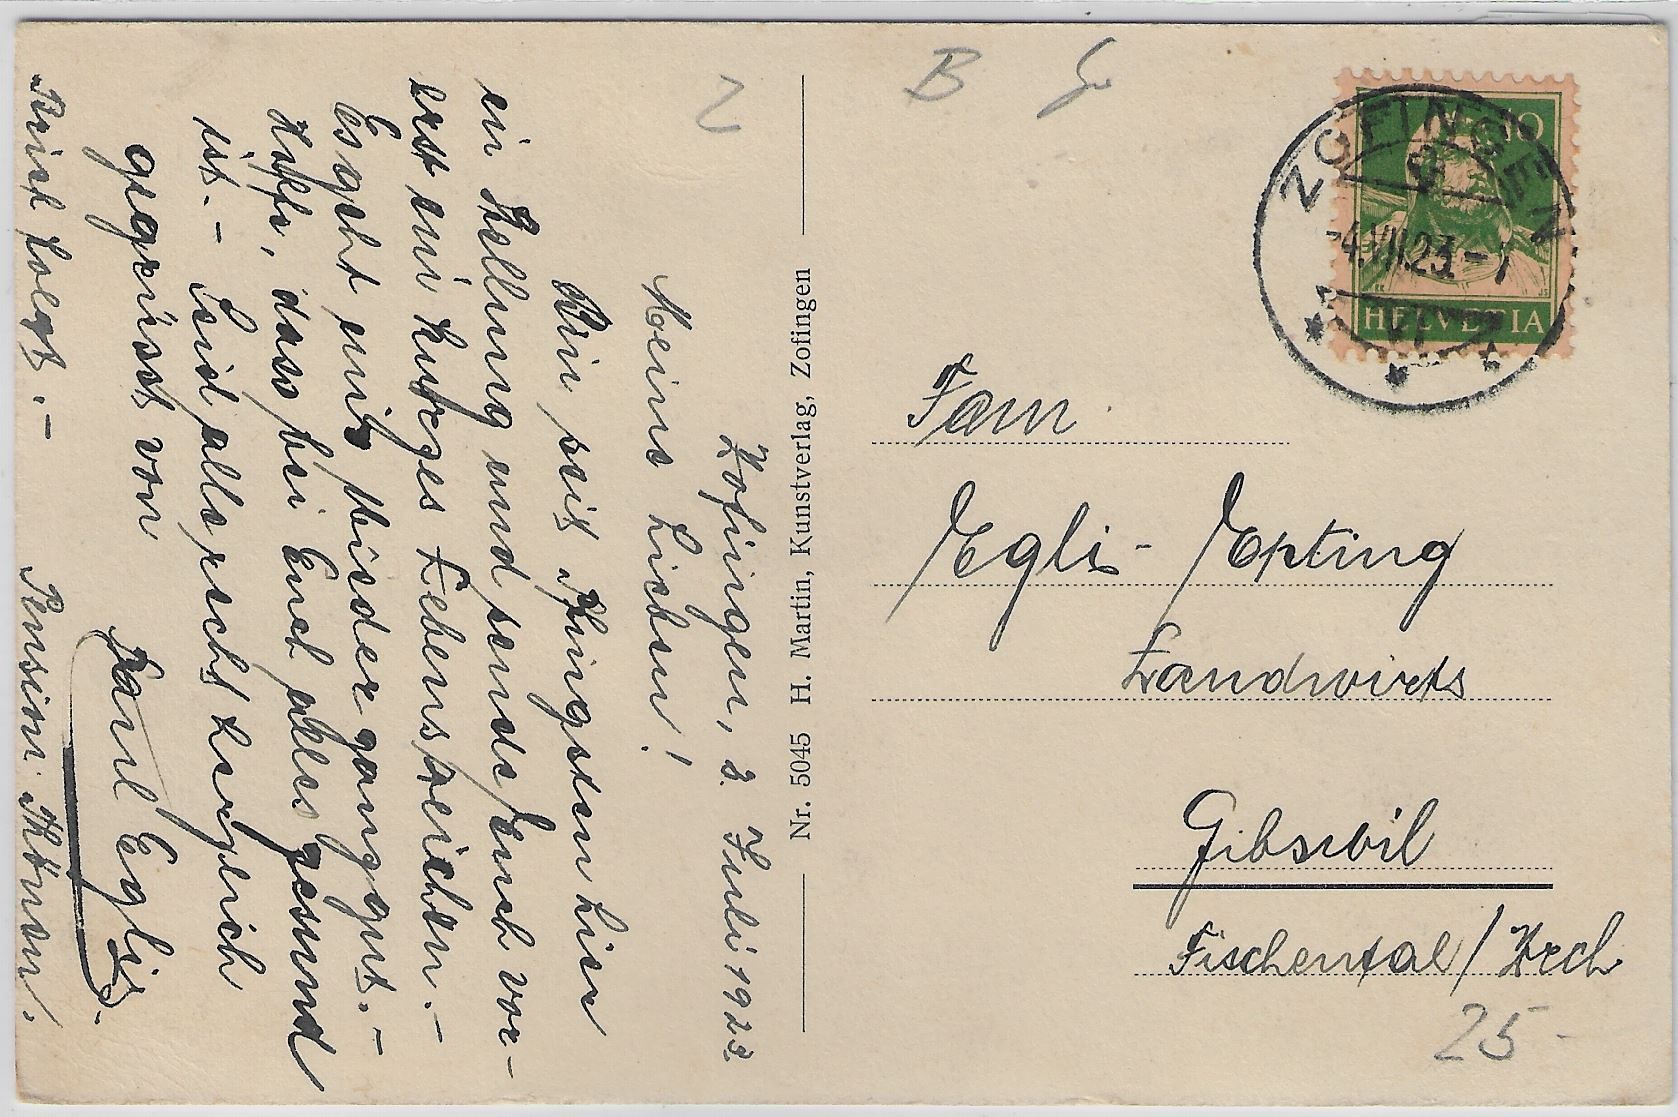 Zofingen, 3. Juli 1923.
Meine Lieben!
Bin seit Pfingsten hier
in Stellung und sende Euch vor-
erst ein kurzes Lebenszeichen. -
Es geht mir bisder ganz gut. -
Hoffe, dass bei Euch alles gesund
ist. - Seid alle recht herzlich
gegrüsst von
Paul Egli.
Brief folgt. -
Pension Thönen.
Nr. 5045 H. Martin, Kunstverlag, Zofingen
B
10
HELVETIA
ZOFINGEN
-4.VII.23.-7
Fam.
Egli-Epting
Landwirts
Gibswil
Fischental/Zrch
25-